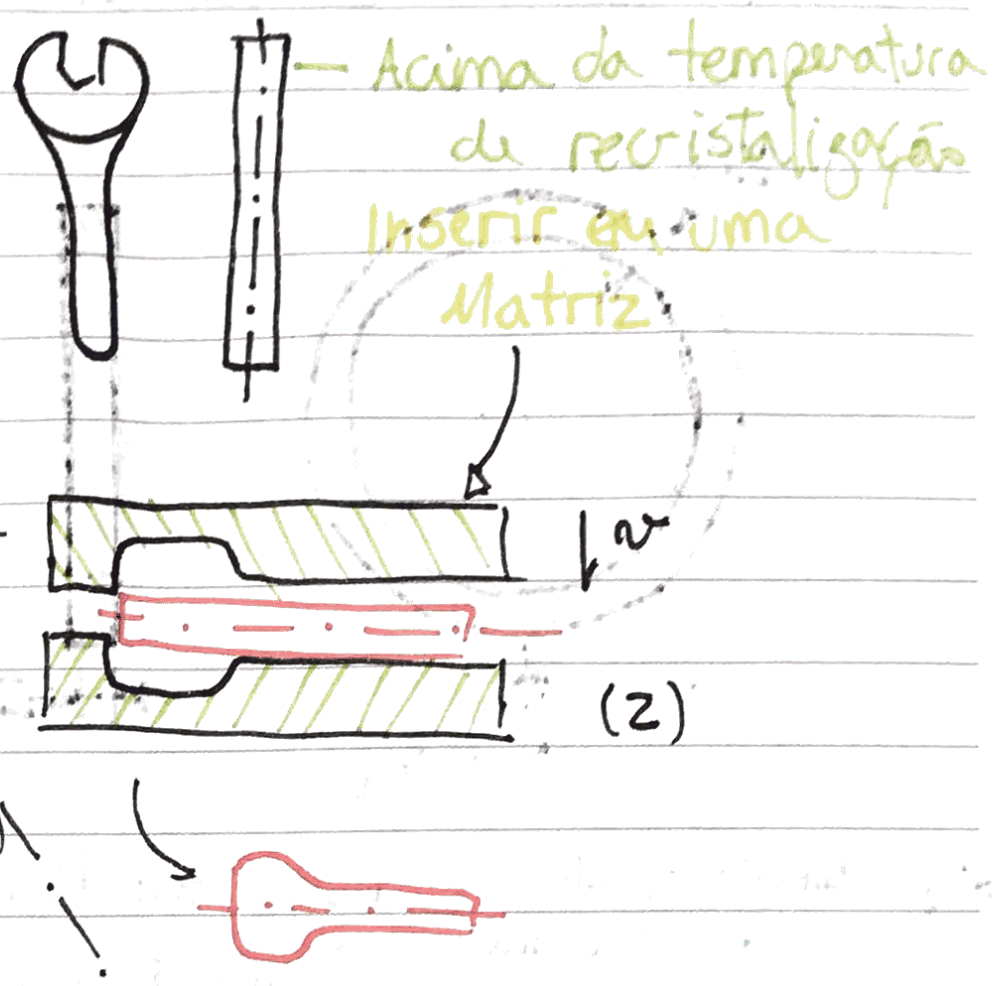 Acima da temperatura
de recristalização
Inserir em uma
Matriz
v
(2)